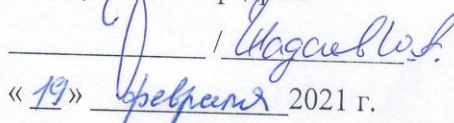 / Шадаев Ю.А.
« 19 » февраля 2021 г.